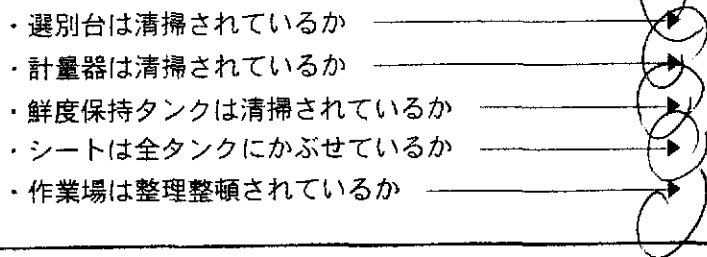 ・選別台は清掃されているか
・計量器は清掃されているか
・鮮度保持タンクは清掃されているか
・シートは全タンクにかぶせているか
・作業場は整理整頓されているか